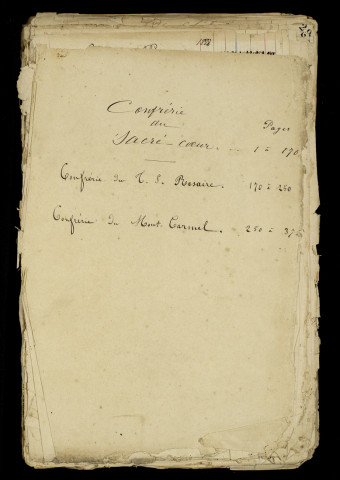 Confrérie
du
Sacré-coeur. — 1 à 170
Pages
Confrérie du T. S. Rosaire. 170 à 250
Confrérie du Mont Carmel. 250 à